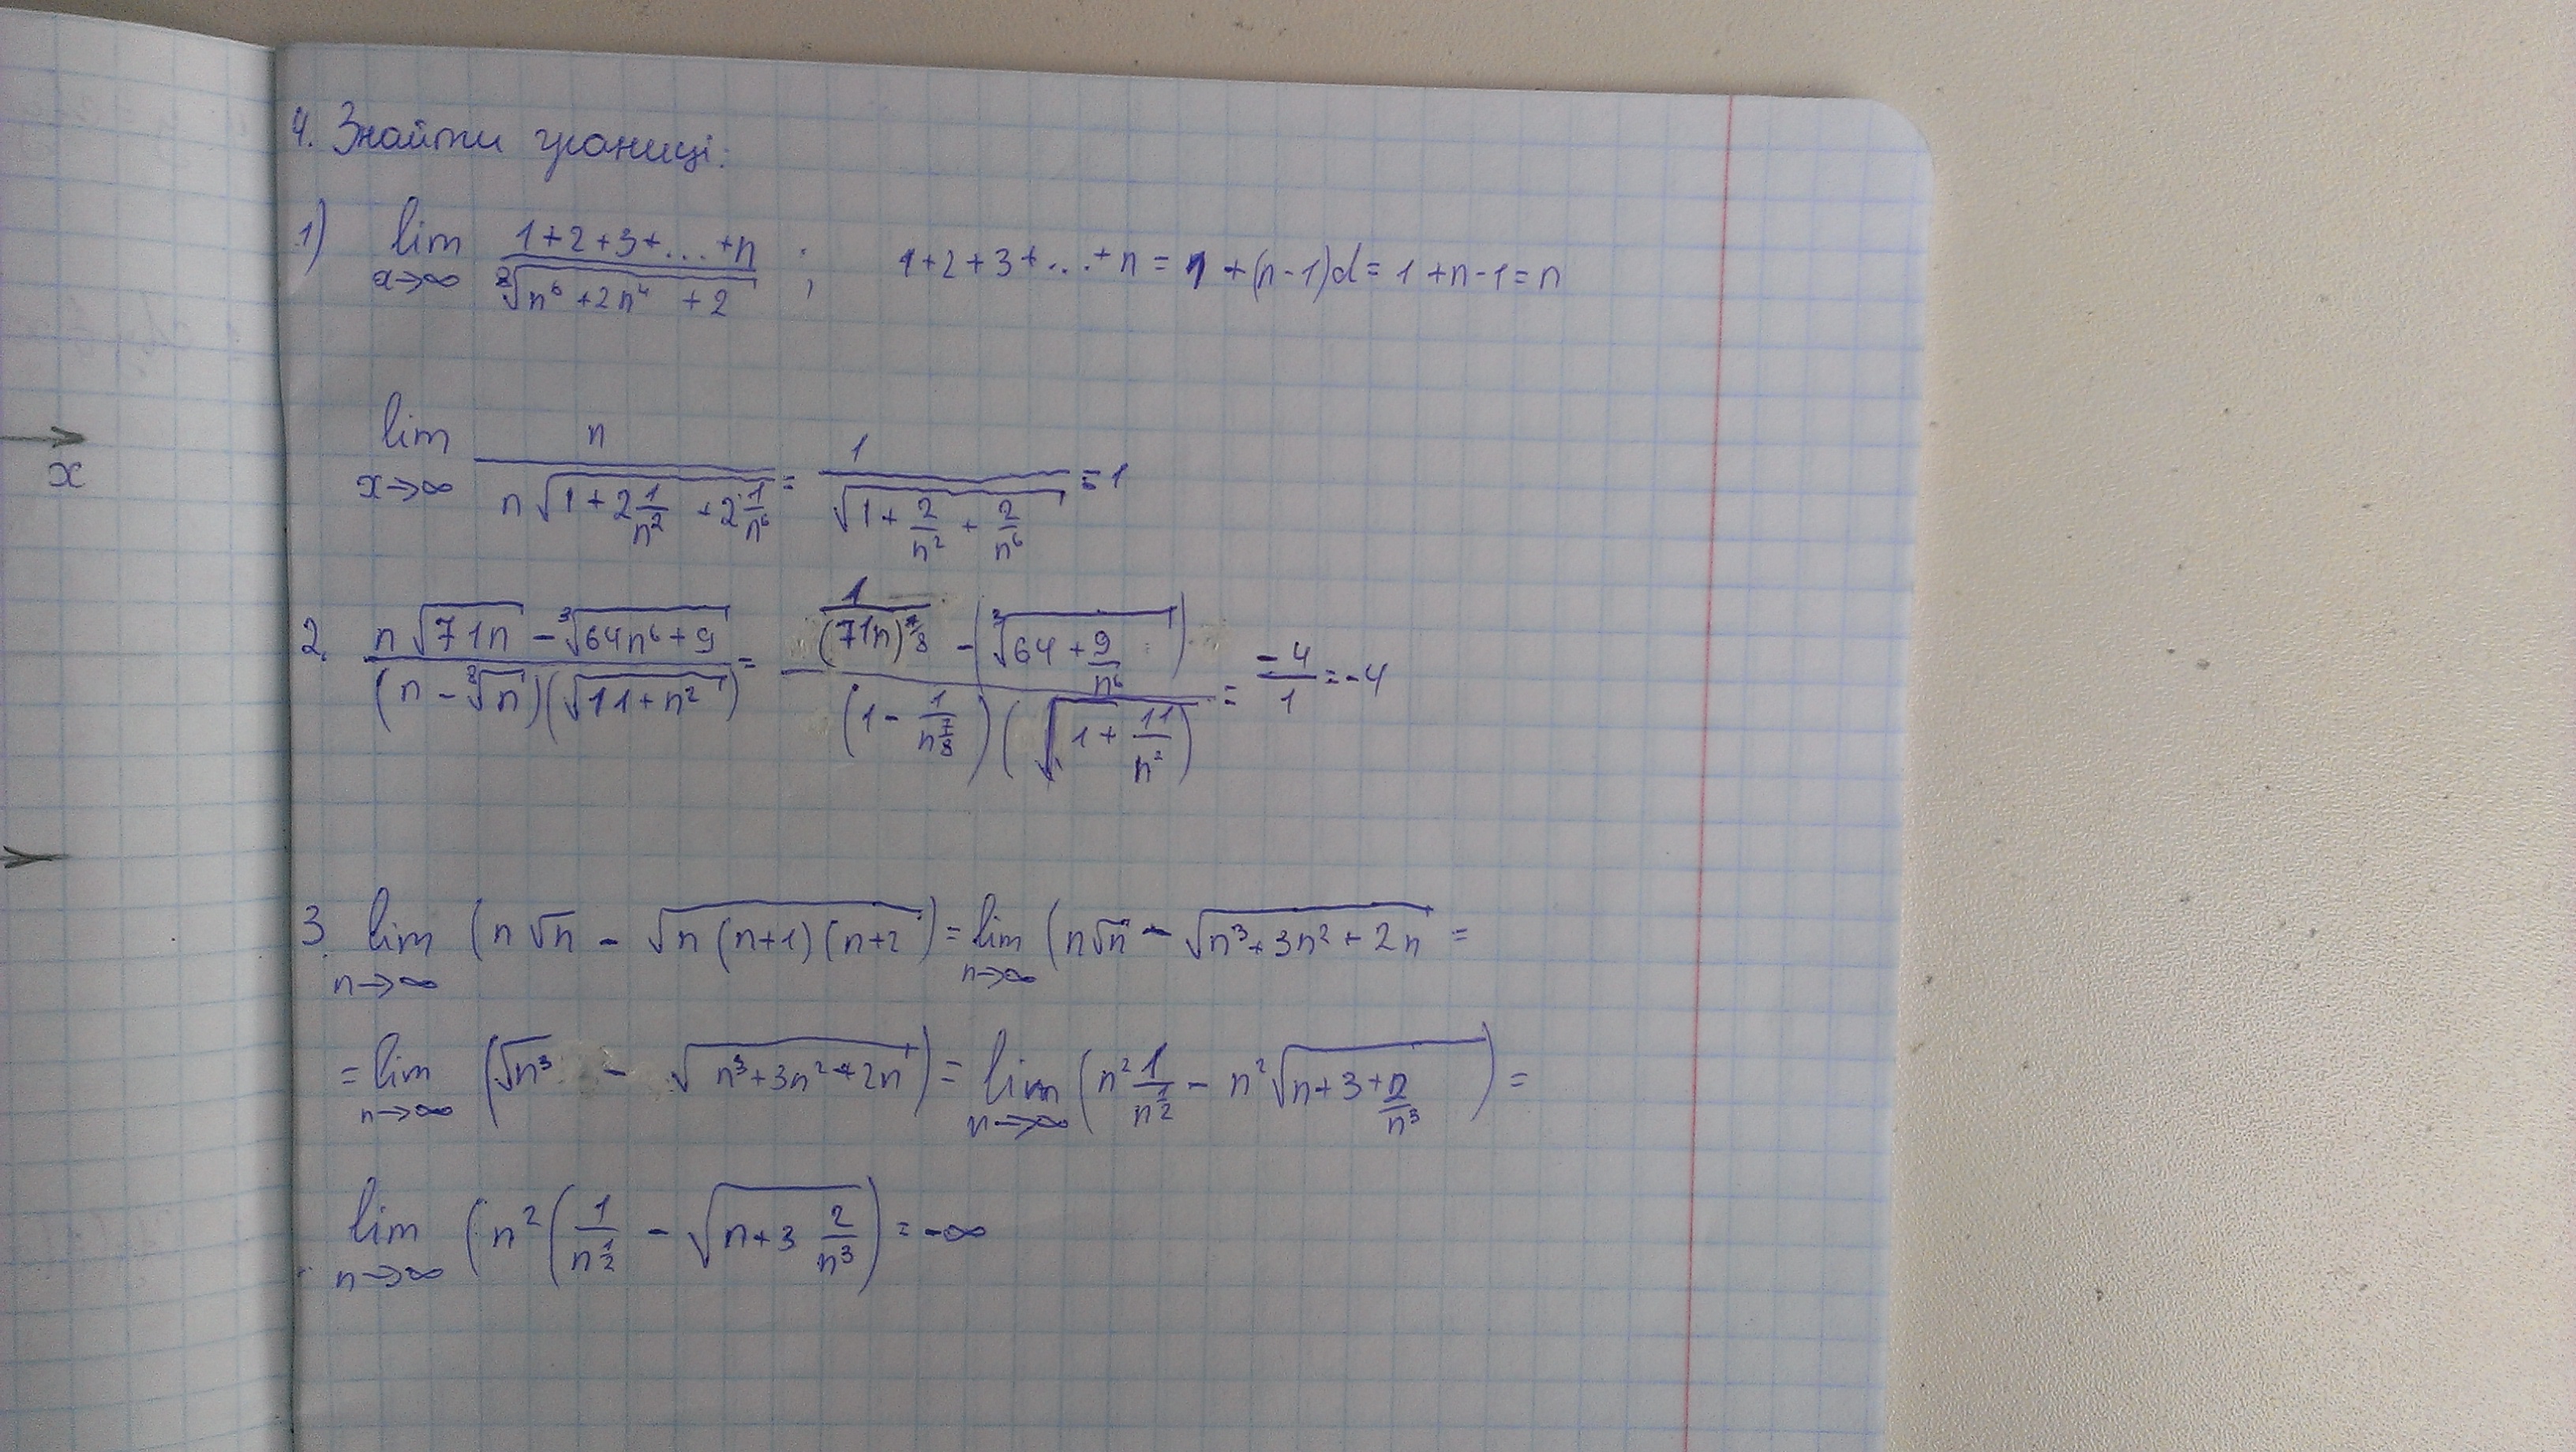 4. Знайти границі:
1) lim x→∞ (1+2+3+...+n)/∛(n⁶+2n⁴+2) ; 1+2+3+...+n = 1+(n-1)d = 1+n-1 = n
lim x→∞ n/(n√(1+2 1/n² +2 1/n⁶)) = 1/√(1+2/n²+2/n⁶) = 1
2. (n√(71n) - ∛(64n⁶+9))/((n-∛n)(√(11+n²))) = (1/(71n) - (∛(64+9/n⁶)))/((1-1/n^(7/8))(√(1+11/n²))) = -4/1 = -4
3. lim n→∞ (n√n - √(n(n+1)(n+2)) = lim n→∞ (n√n - √(n³+3n²+2n) =
= lim n→∞ (√n³ - √(n³+3n²+2n)) = lim n→∞ (n² 1/n^(1/2) - n²√(n+3+2/n³)) =
lim n→∞ (n²(1/n^(1/2) - √(n+3 2/n³)) = -∞
x